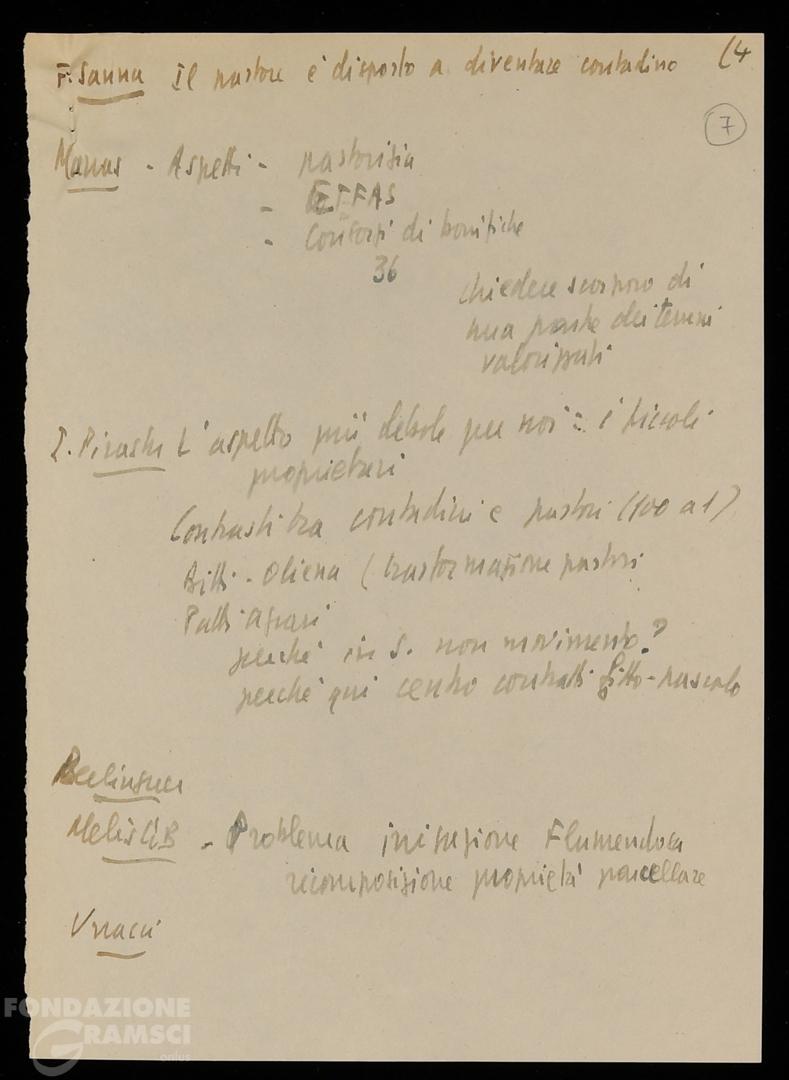 F. Sanna Il pastore è disposto a diventare contadino (4
7
Manus - Aspetti - pastorizia
- ETFAS
- Consorzi di bonifiche
36
chiedere scorporo di
una parte dei terreni
valorizzati
I. Pirastu L'aspetto più debole per noi: i piccoli
proprietari
Contrasti tra contadini e pastori (100 a 1)
Bitti - Oliena (trasformazione pastori
Patti agrari
perché in S. non movimento?
perché qui centro contratti fitto-pascolo
Berlinguer
Melis G.B - Problema irrigazione Flumendosa
ricomposizione proprietà parcellare
FONDAZIONE
GRAMSCI
onlus